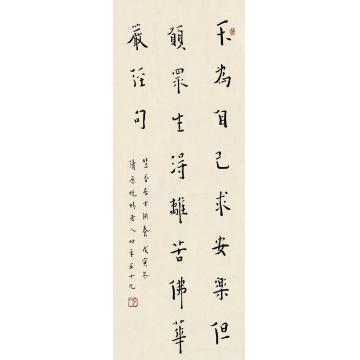 不為自己求安樂但
願眾生得離苦佛華
嚴經句
居士供養戊寅冬
清原晚晴老人時年五十九